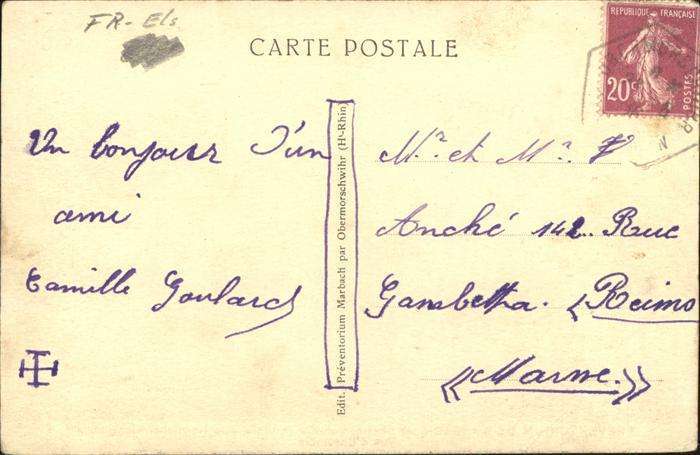 FR-Els
CARTE POSTALE
REPUBLIQUE FRANÇAISE
20c
POSTES
Un bonjour d'un
ami
Camille Goulard
Edit. Préventorium Marbach par Obermorschwihr (Ht-Rhin)
Mr et Mr. V
Anché 142 Rue
Gambetta. (Reims
((Marne.))